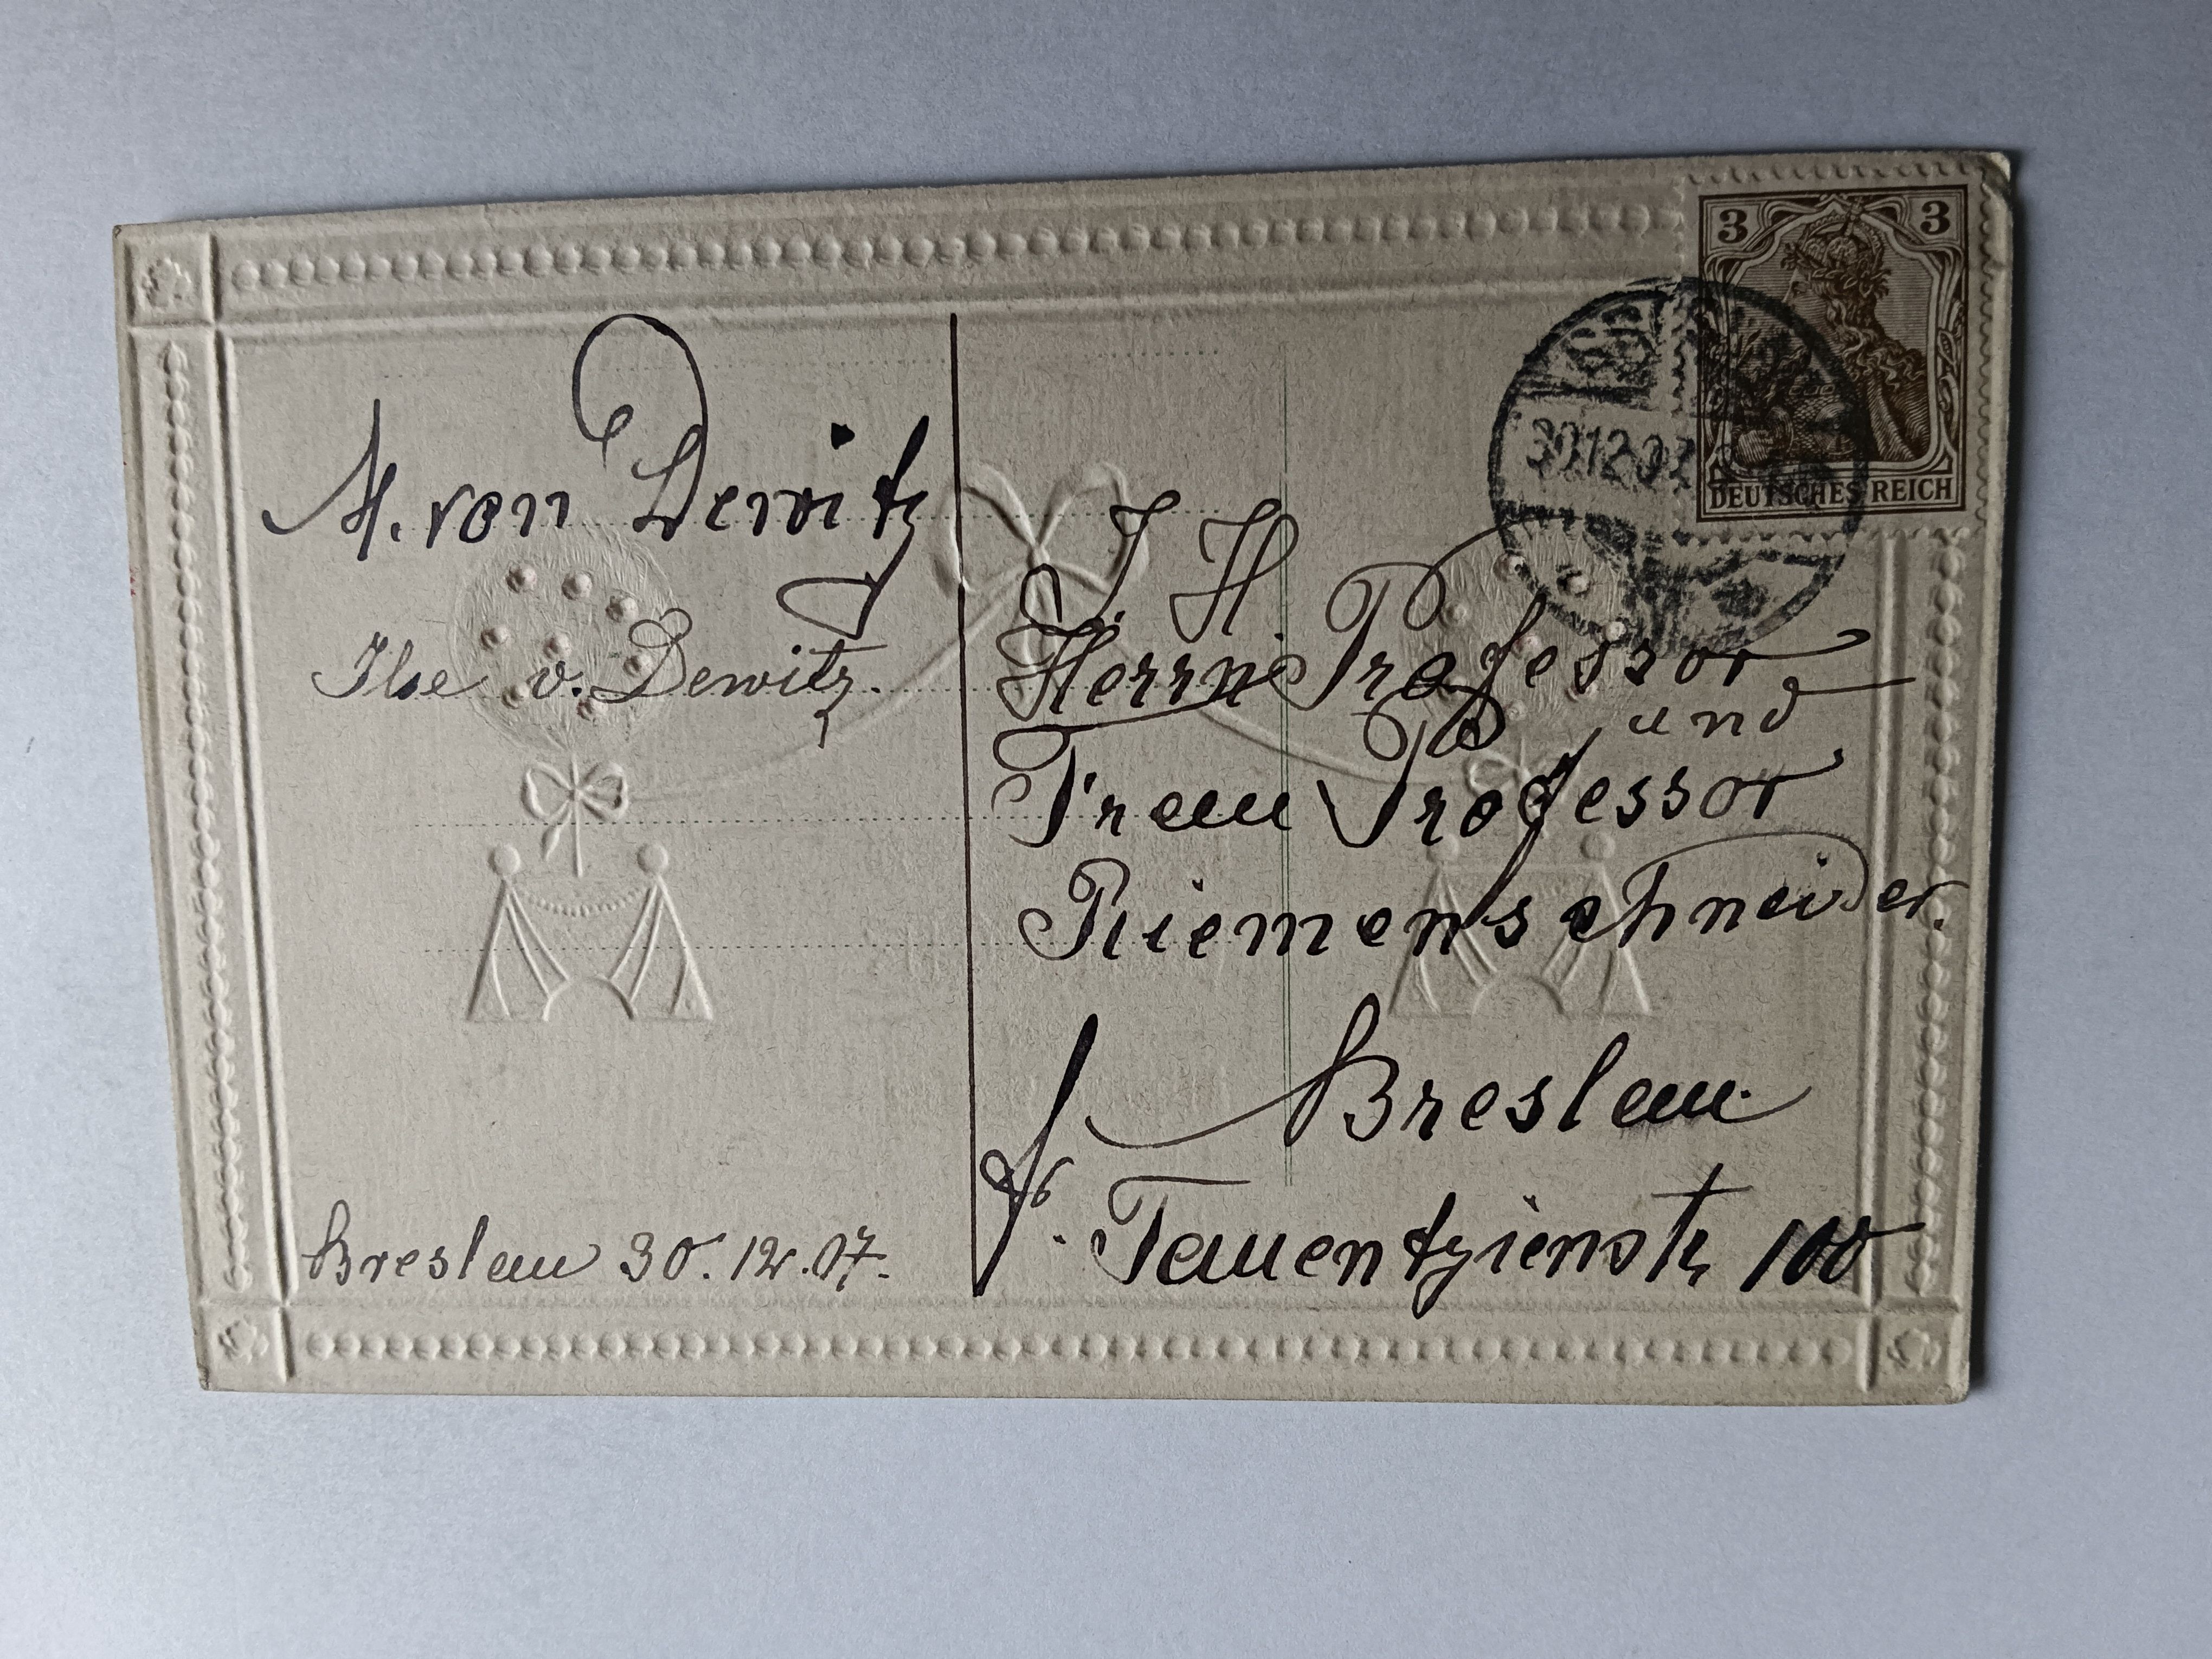 M. von Dewitz
Ilse v. Dewitz.
Breslau 30. 12. 07.
3 3
DEUTSCHES REICH
30.12.07
I. H.
Herrn Professor
und
Frau Professor
Riemenschneider.
Breslau.
Tauentzienstr 100